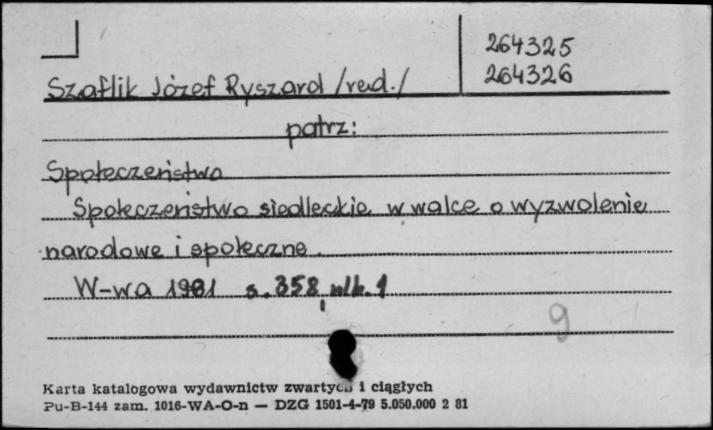 264325
264326
Szaflik Józef Ryszard /red./
patrz:
Społeczeństwo
Społeczeństwo siedleckie w walce o wyzwolenie
narodowe i społeczne.
W-wa 1981 s. 358, nlb. 1
9
Karta katalogowa wydawnictw zwartych i ciągłych
Pu-B-144 zam. 1016-WA-O-n — DZG 1501-4-79 5.050.000 2 81